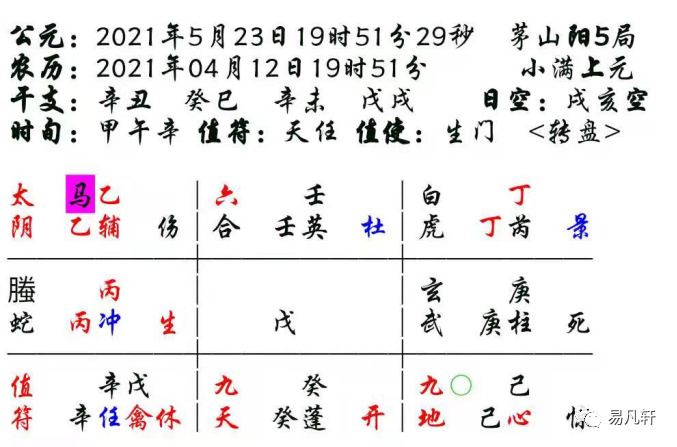 公元：2021年5月23日19时51分29秒 茅山阳5局
农历：2021年04月12日19时51分 小满上元
干支：辛丑 癸巳 辛未 戊戌 日空：戌亥空
时旬：甲午辛 值符：天任 值使：生门 <转盘>
太 马乙 六 壬 白 丁
阴 乙辅 伤 合 壬英 杜 虎 丁芮 景
螣 丙 玄 庚
蛇 丙冲 生 戊 武 庚柱 死
值 辛戊 九 癸 九〇 己
符 辛任禽休 天 癸蓬 开 地 己心 惊
易凡轩